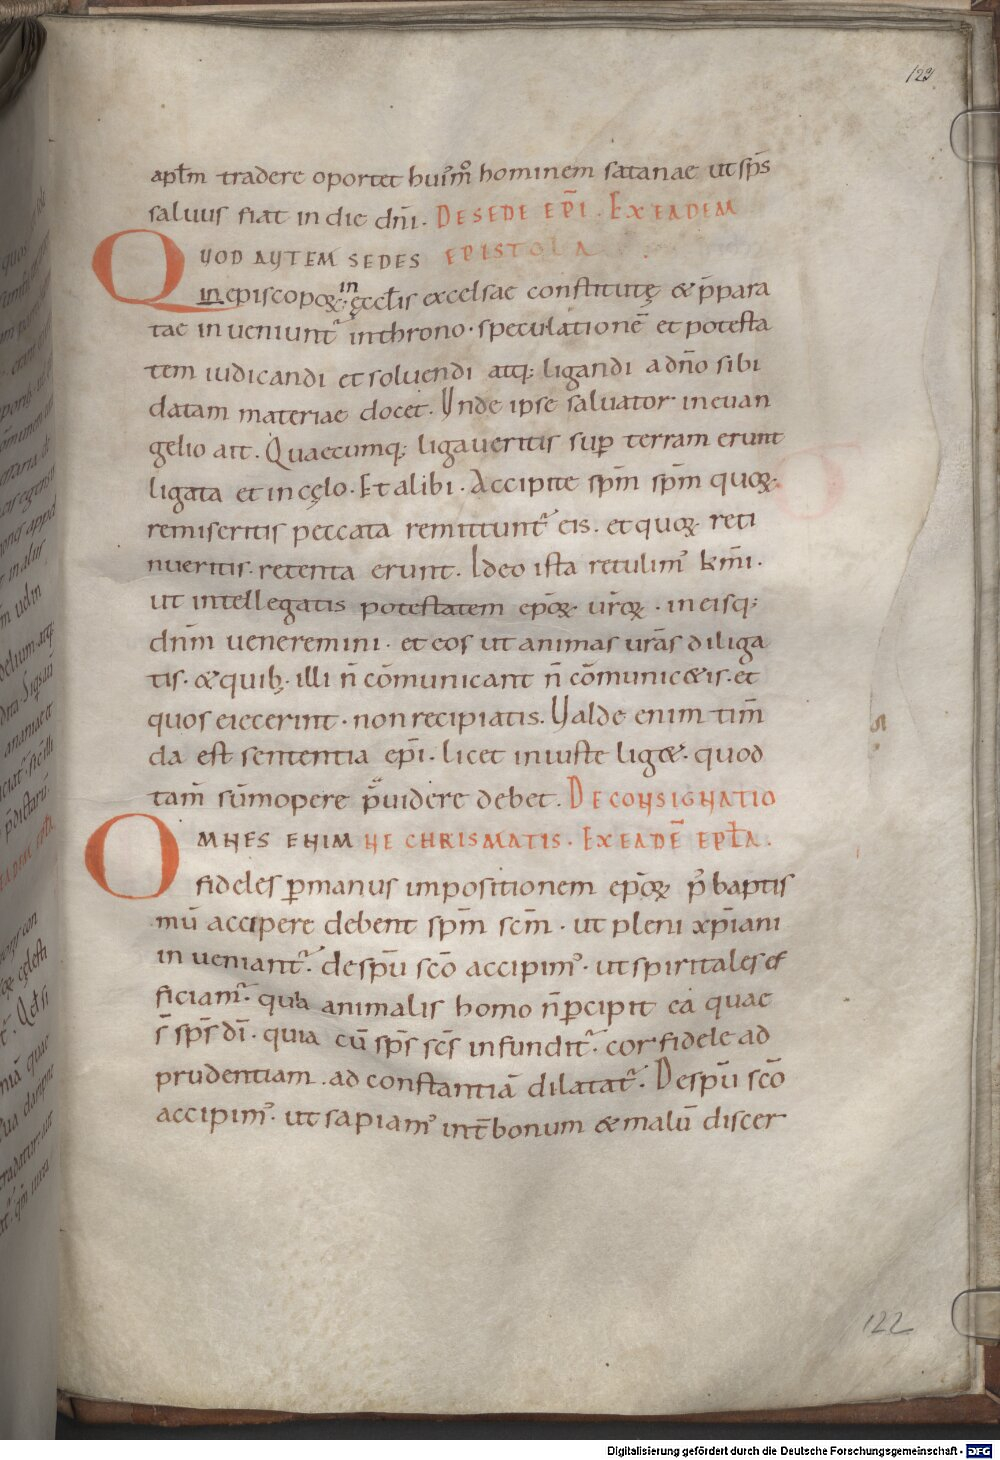 123
apłm tradere oportet huiᷤmͦ hominem satanae ut sp̄s
saluus fiat in die dn̄i. DE SEDE EP̄I. EX EADEM
QUOD AUTEM SEDES EPISTOLA
in episcopoꝝ; in ęccl̄is excelsae constitutę & p̄para
tae inueniunt᷑ inthrono. speculationē et potesta
tem iudicandi et soluendi atq; ligandi a dn̄o sibi
datam materiae docet. Unde ipse saluator in euan
gelio ait. Quaecumq; ligaueritis sup̄ terram erunt
ligata et in cęlo. Et alibi. Accipite sp̄m sp̄m quoꝝ.
remiseritis peccata remittunt᷑ eis. et quoꝝ. reti
nueritis. retenta erunt. Ideo ista retulim᾽ km̄i.
ut intellegatis potestatem ep̄oꝝ. ur̄oꝝ. in eisq;
dn̄m ueneremini. et eos ut animas ur̄as diliga
tis. & quib; illi n̄ cōmunicant n̄ cōmunic&is. et
quos eiecerint. non recipiatis. Ualde enim tim̄
da est sententia ep̄i. licet iniuste lig&᷑. quod
tam̄ sūmopere p̄uidere debet. DE CONSIGNATIO
OMNES ENIM NE CHRISMATIS. EX EADĒ EPŁA.
fideles ꝑ manus impositionem ep̄oꝝ p᷒ baptis
mū accipere debent sp̄m sc̄m. ut pleni xp̄iani
inueniant᷑. de sp̄u sc̄o accipim᾽. ut spiritales ef
ficiam᷑. quia animalis homo n̄ ꝑcipit ea quae
s̄ sp̄s dī. quia cū sp̄s sc̄s infundit᷑. cor fidele ad
prudentiam. ad constantiā dilatat᷑. De sp̄u sc̄o
accipim᾽. ut sapiam᾽ int̄ bonum & malū discer
122
Digitalisierung gefördert durch die Deutsche Forschungsgemeinschaft - DFG